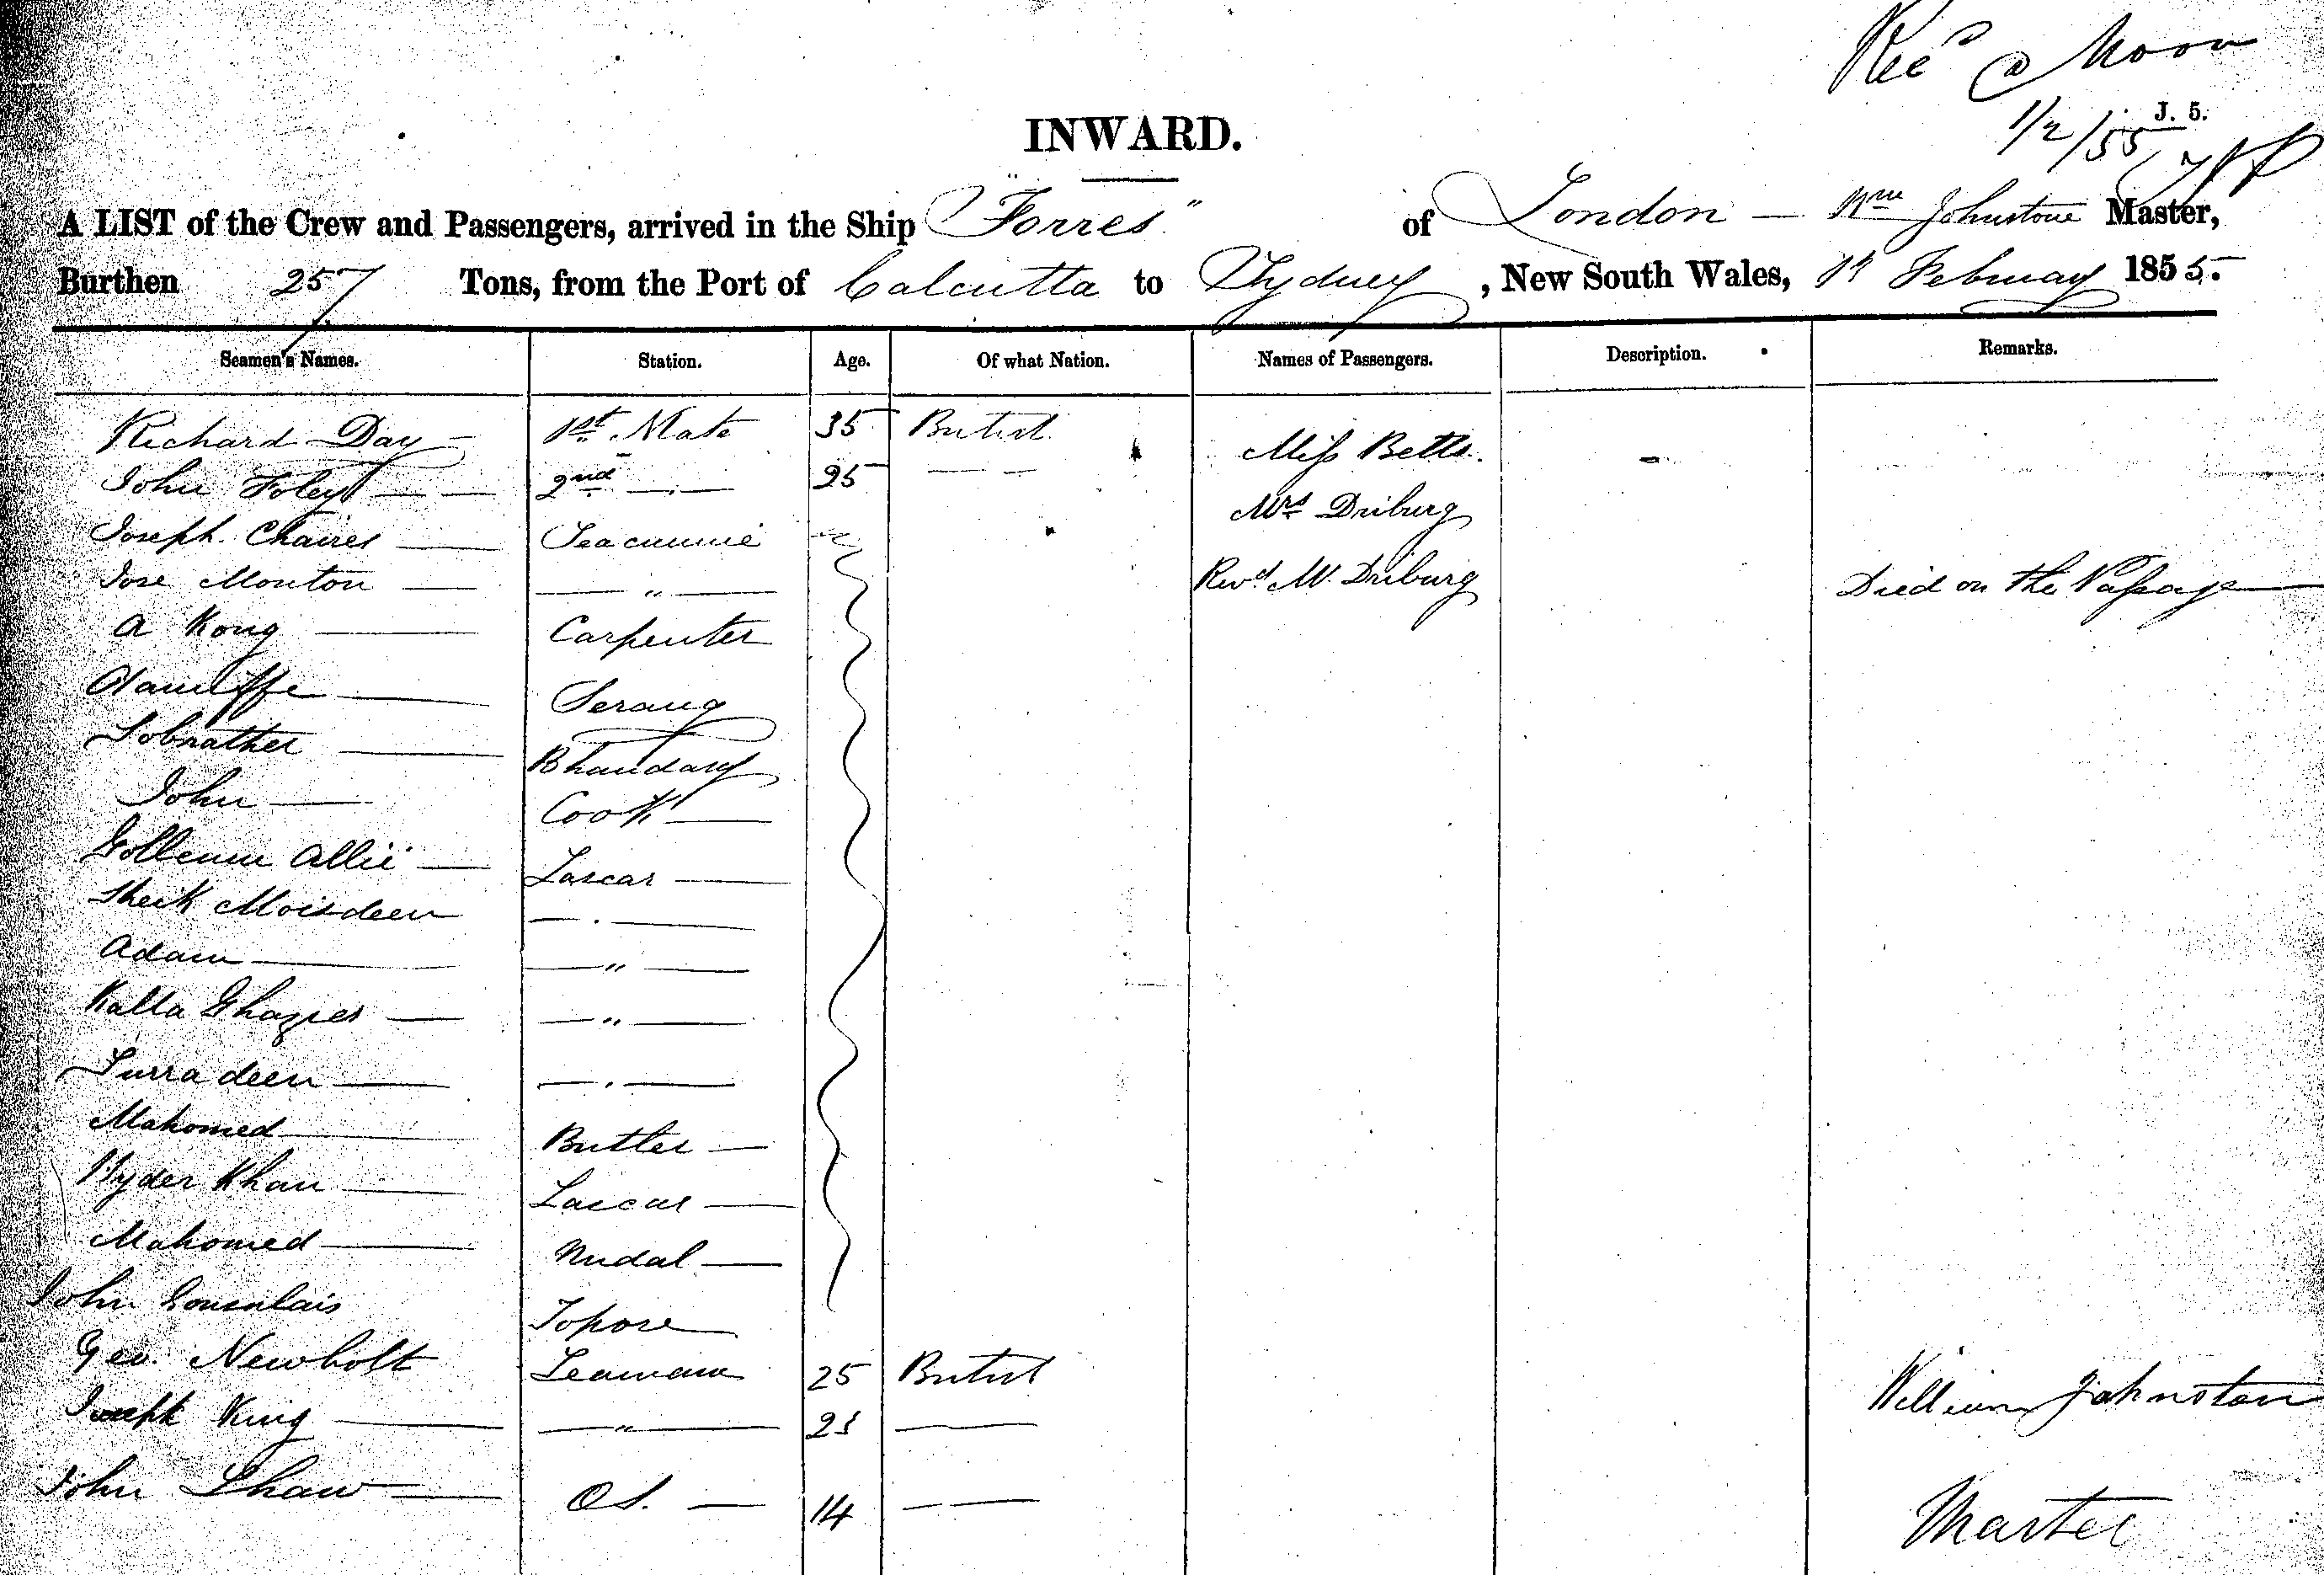 Rec'd @ Noon
J. 5.
1/2/55
INWARD.
A LIST of the Crew and Passengers, arrived in the Ship "Forres" of London — Wm Johnstone Master,
Burthen 257 Tons, from the Port of Calcutta to Sydney, New South Wales, 1st February 1855.
Seamen's Names. Station. Age. Of what Nation. Names of Passengers. Description. Remarks.
Richard Day 1st Mate 35 British Miss Betts.
John Foley 2nd — " — 25 — — Mrs Driburg
Joseph Chaires Seacunnie
Jose Monton — " — Revd M. Driburg Died on the Passage
A Kong Carpenter
Serang
Sobrather Bhandary
John Cook
Golleum Allie Lascar
Sheik Moisdeen — " —
Adam — " —
Kalla Ghazies — " —
Surradeen — " —
Mahomed Butler
Hyder Khan Lascar
Mahomed
John Gonsalais Topore
Geo. Newbolt Seaman 25 British
Joseph King — " — —
John Shaw OS. — 14 — —
William Johnston
Master